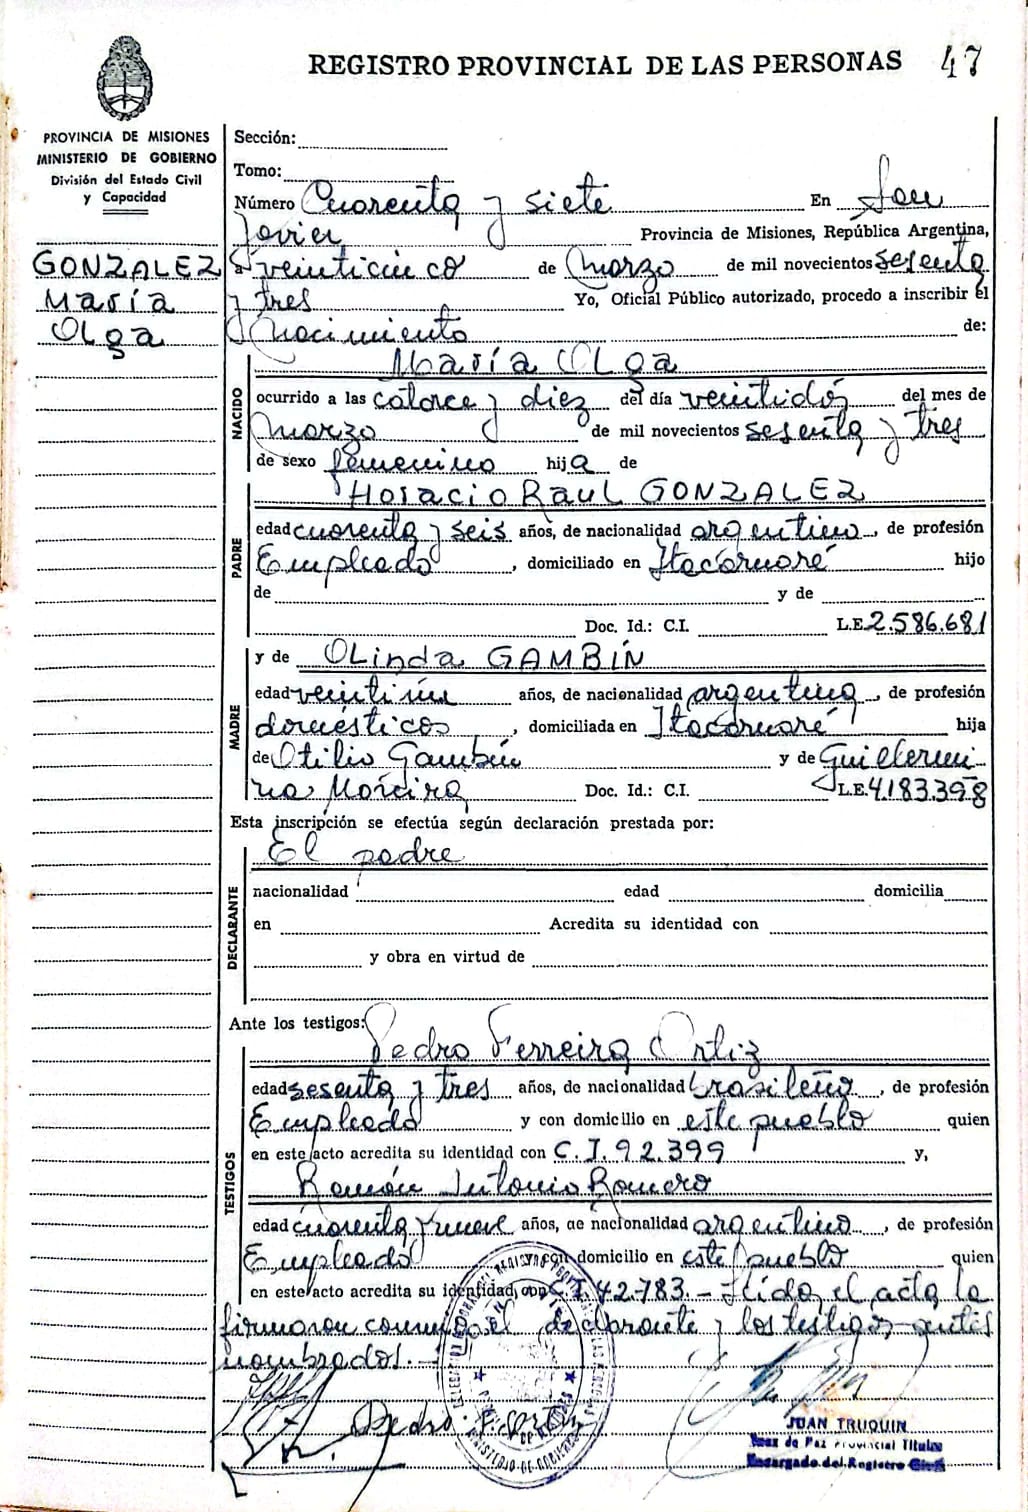 REGISTRO PROVINCIAL DE LAS PERSONAS 47
PROVINCIA DE MISIONES
MINISTERIO DE GOBIERNO
División del Estado Civil
y Capacidad
GONZALEZ
María
Olga
Sección:
Tomo:
Número Cuarenta y siete En San
Javier Provincia de Misiones, República Argentina,
a veinticinco de Marzo de mil novecientos sesenta
y tres Yo, Oficial Público autorizado, procedo a inscribir el
Nacimiento de:
NACIDO
María Olga
ocurrido a las catorce y diez del día veintidós del mes de
Marzo de mil novecientos sesenta y tres
de sexo femenino hija de
PADRE
Horacio Raul GONZALEZ
edad cuarenta y seis años, de nacionalidad argentino, de profesión
Empleado, domiciliado en Itacáruaré hijo
de y de
Doc. Id.: C.I. L.E. 2.586.681
MADRE
y de OLinda GAMBÍN
edad veintiún años, de nacionalidad argentina, de profesión
domésticos, domiciliada en Itacáruaré hija
de Otilio Gambín y de Guillermi-
na Moreira Doc. Id.: C.I. L.E. 4.183.398
Esta inscripción se efectúa según declaración prestada por:
DECLARANTE
El padre
nacionalidad edad domicilia
en Acredita su identidad con
y obra en virtud de
Ante los testigos:
TESTIGOS
Pedro Ferreira Ortiz
edad sesenta y tres años, de nacionalidad brasileño, de profesión
Empleado y con domicilio en este pueblo quien
en este acto acredita su identidad con C.I. 92.399 y,
Ramón Antonio Romero
edad cuarenta y nueve años, de nacionalidad argentino, de profesión
Empleado y con domicilio en este pueblo quien
en este acto acredita su identidad con C.I. 42.783.- Leída el acta la
firmaron conmigo el declarante y los testigos antes
nombrados.-
Pedro F. Ortiz
JUAN TRUQUIN
Juez de Paz Provincial Titular
Encargado del Registro Civil